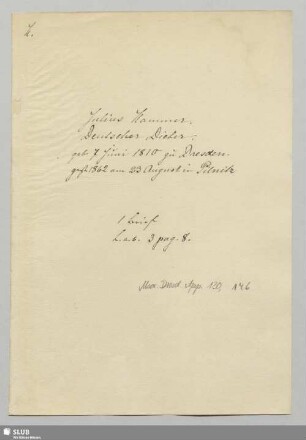 2.
Julius Hammer.
Deutscher Dichter.
geb. 7 Juni 1810 zu Dresden.
gest. 1862 am 23 August in Pilnitz
1 Brief
L. a. s. 3 pag. 8.
Mscr. Dresd. App. 120, 146
SLUB
Wir führen Wissen.